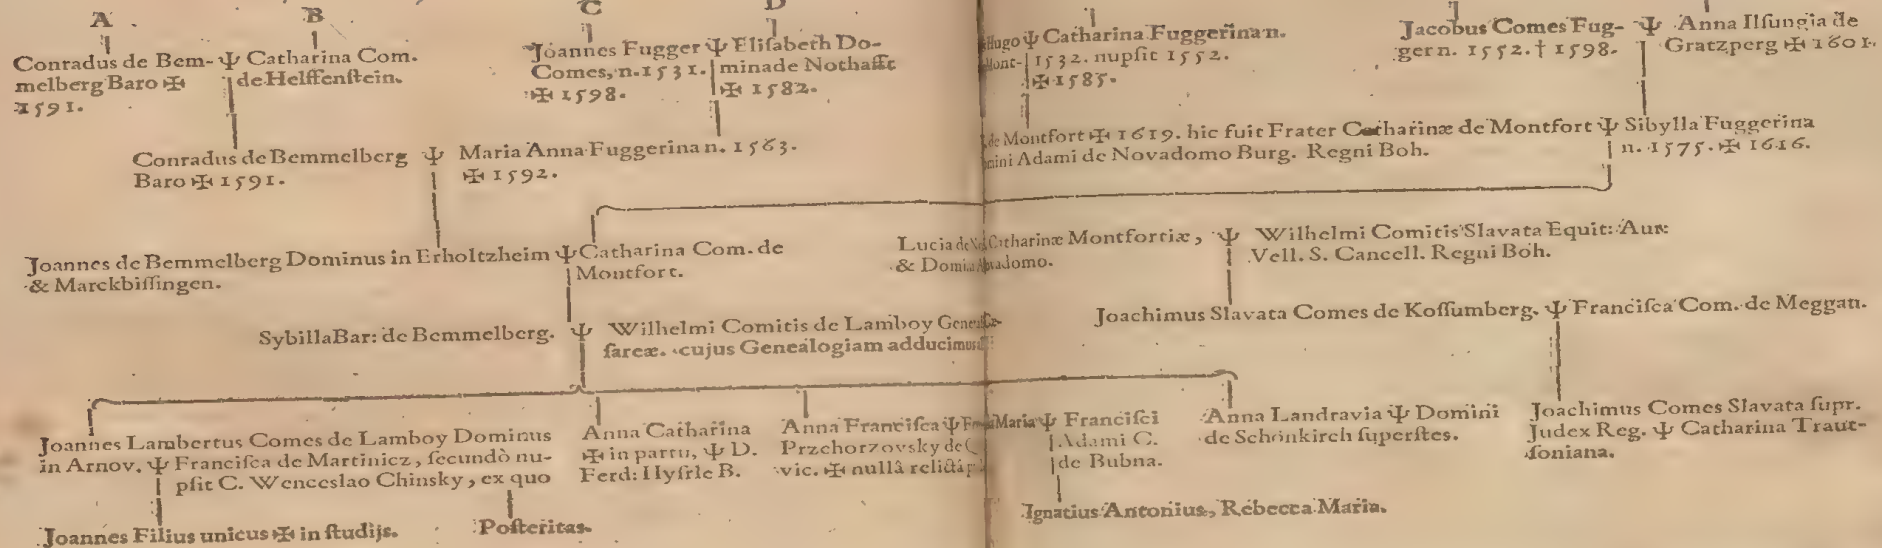 A
B
C
D
Conradus de Bem- Ψ Catharina Com.
melberg Baro ✠ de Helffenstein.
1591.
Joannes Fugger Ψ Elisabeth Do-
Comes, n. 1531. minade Nothafft
✠ 1598. ✠ 1582.
Hugo Ψ Catharina Fuggerina n.
Mont- 1532. nupsit 1552.
✠ 1585.
Jacobus Comes Fug- Ψ Anna Ilsungia de
ger n. 1552. † 1598. Gratzperg ✠ 1601.
Conradus de Bemmelberg Ψ Maria Anna Fuggerina n. 1563.
Baro ✠ 1591. ✠ 1592.
de Montfort ✠ 1619. hic fuit Frater Catharinæ de Montfort Ψ Sibylla Fuggerina
Adami de Novadomo Burg. Regni Boh. n. 1575. ✠ 1616.
Joannes de Bemmelberg Dominus in Erholtzheim Ψ Catharina Com. de
& Marckbissingen. Montfort.
Lucia de Catharinæ Montfortiæ, Ψ Wilhelmi Comitis Slavata Equit: Aur:
& Domin adomo. Vell. S. Cancell. Regni Boh.
Sybilla Bar: de Bemmelberg. Ψ Wilhelmi Comitis de Lamboy
sareæ. cujus Genealogiam adducimus
Joachimus Slavata Comes de Kossumberg. Ψ Francisca Com. de Meggan.
Joannes Lambertus Comes de Lamboy Dominus
in Arnov. Ψ Francisca de Martinicz, secundò nu-
psit C. Wenceslao Chinsky, ex quo
Anna Catharina
✠ in partu, Ψ D.
Ferd: Hysrle B.
Anna Francisca Ψ
Przchorzovsky de
vic. ✠ nullâ relictâ
Maria Ψ Francisci
Adami C.
de Bubna.
Anna Landravia Ψ Domini
de Schönkirch superstes.
Joachimus Comes Slavata supr.
Judex Reg. Ψ Catharina Traut-
soniana.
Joannes Filius unicus ✠ in studijs.
Posteritas.
Ignatius Antonius, Rebecca Maria.